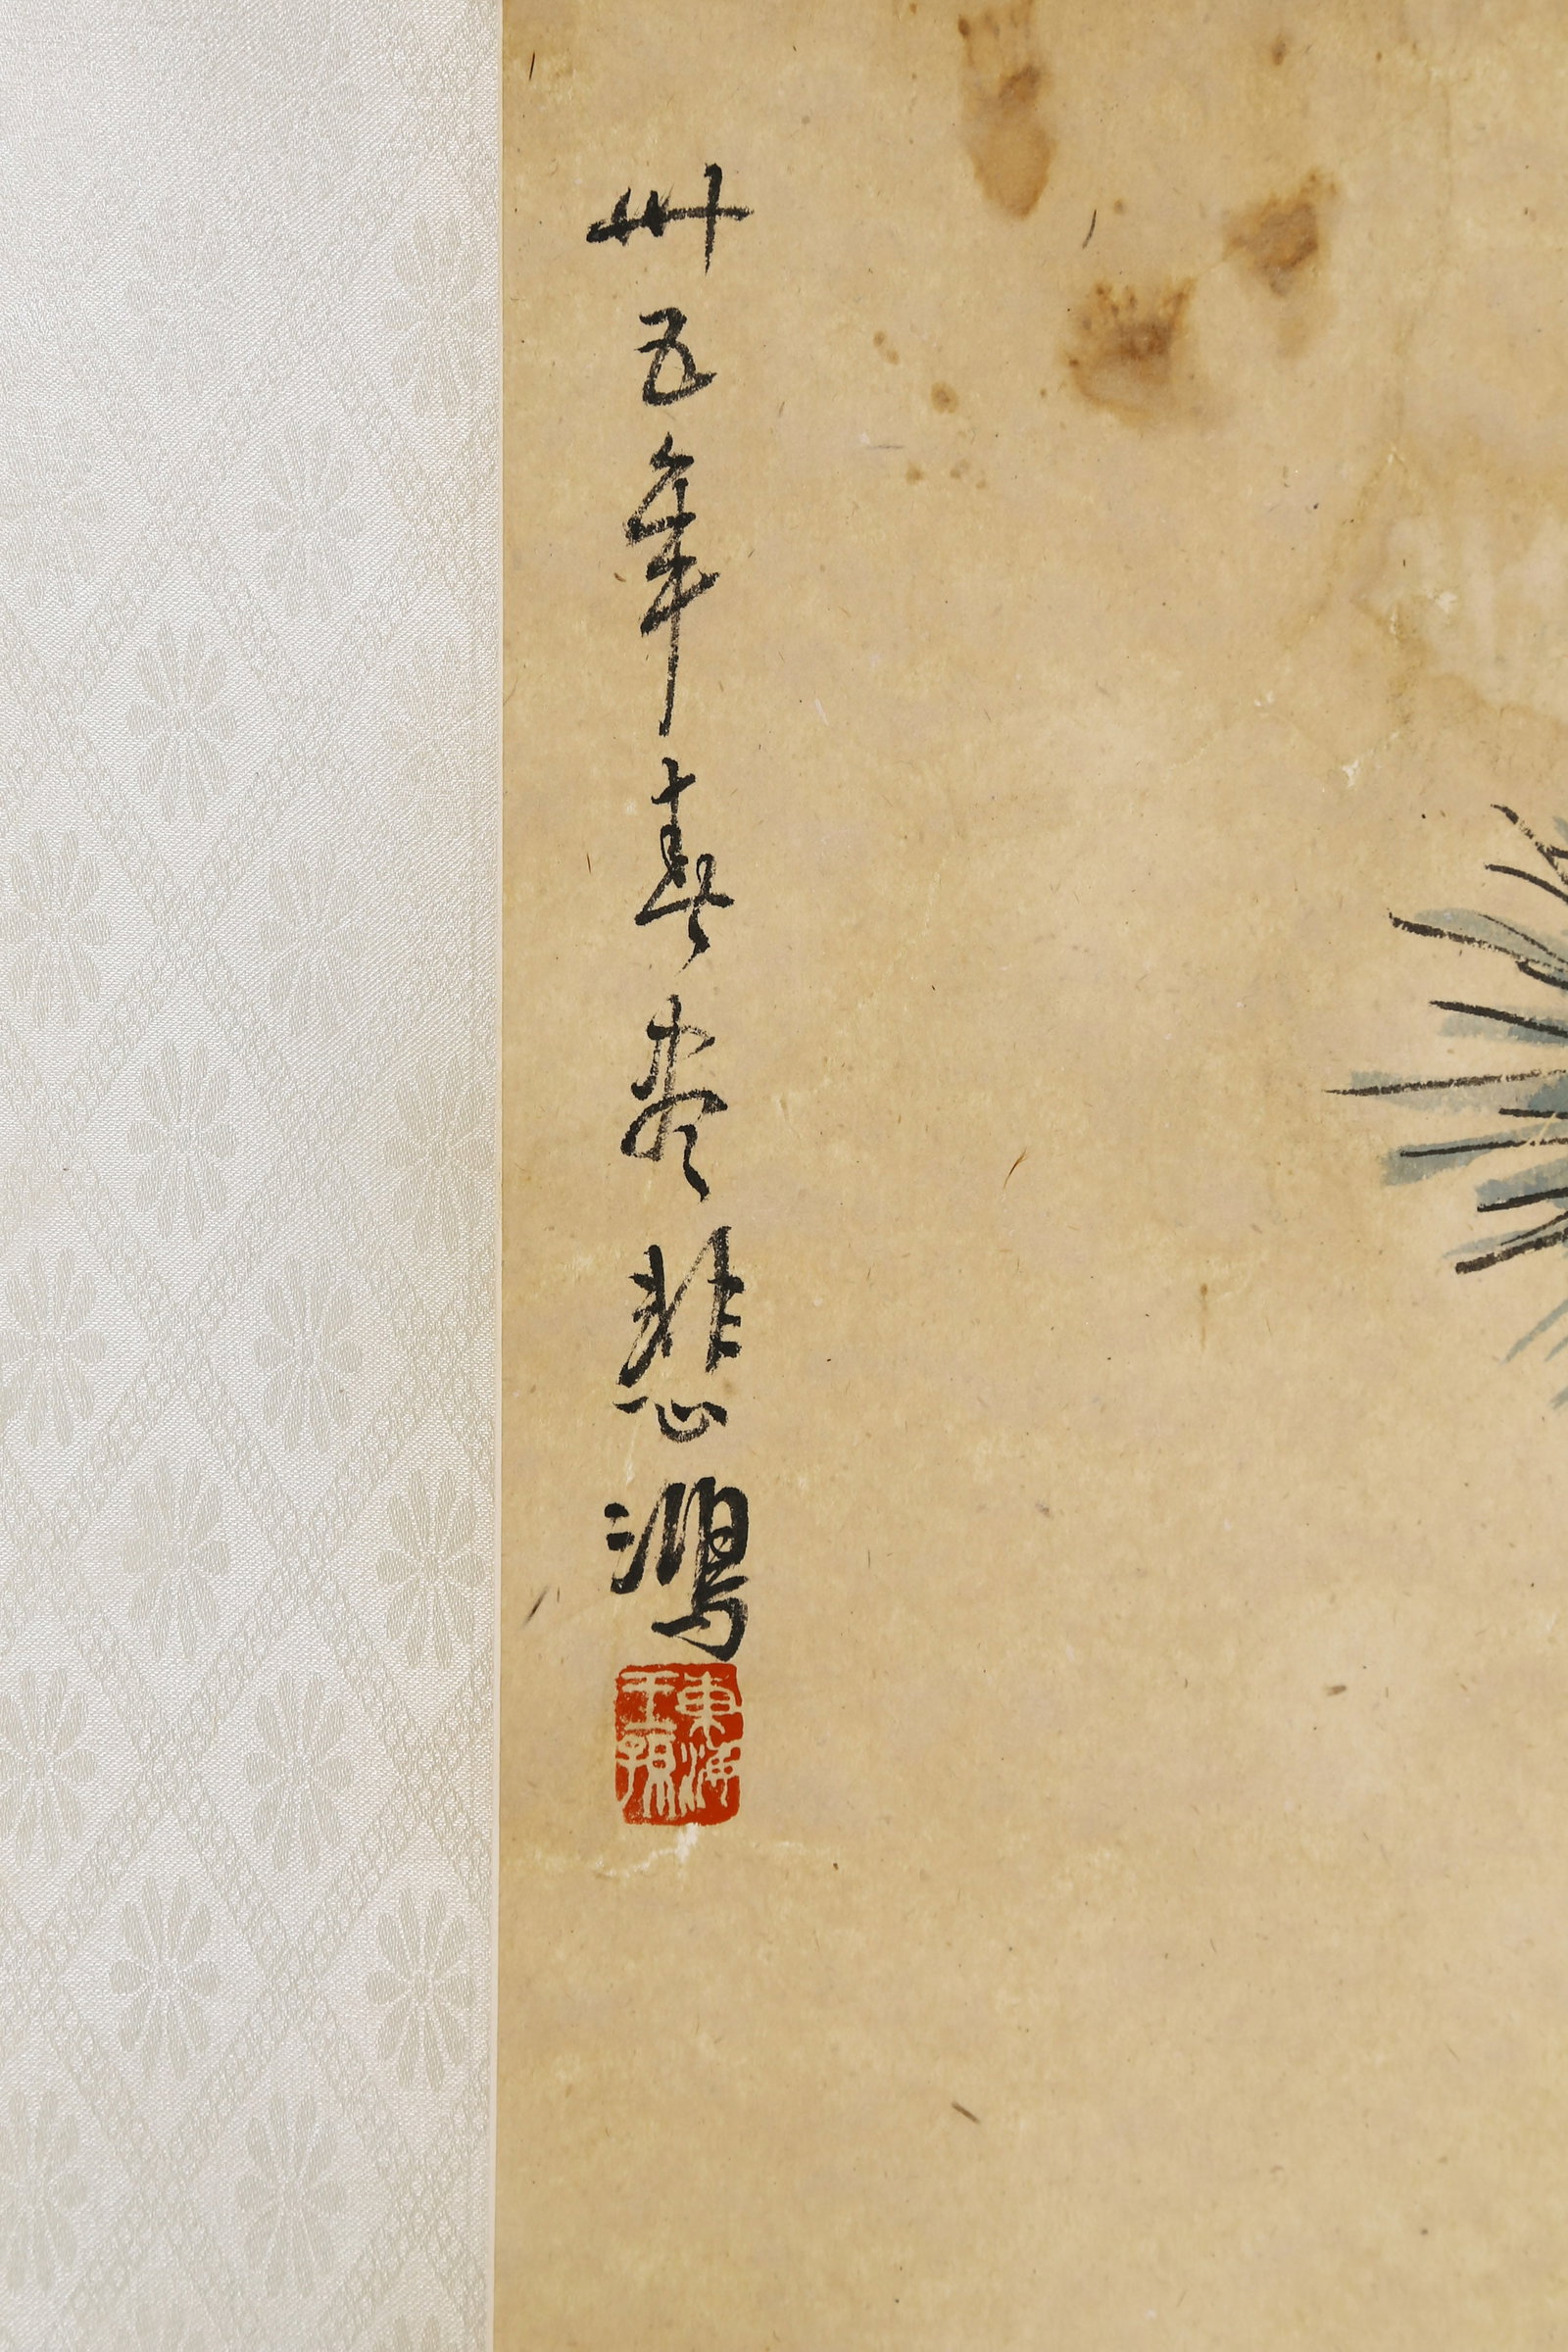 卅五年春尽悲鴻
東海王孫